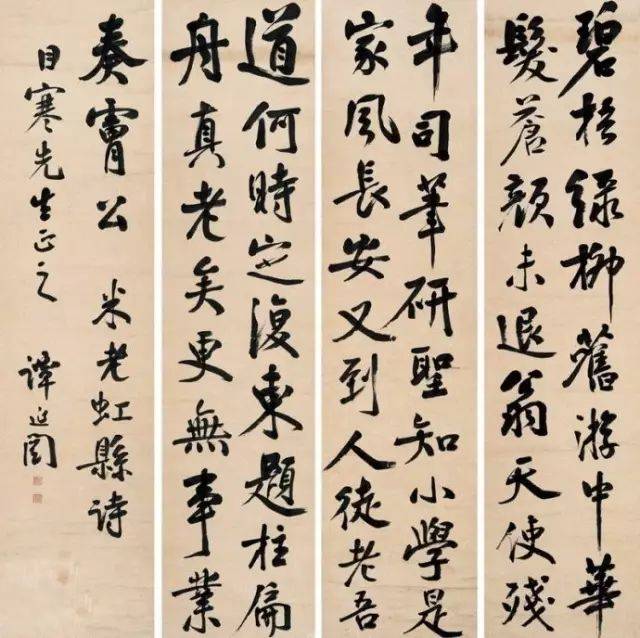 碧榆緑柳舊游中華
髮蒼顔未退翁天使殘
年司筆研聖知小學是
家風長安又到人徒老吾
道何時定復東題柱扁
舟真老矣更無事業
奏膚公 米老虹縣詩
目寒先生正之 譚延闓